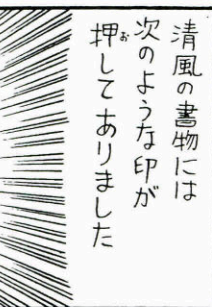 清風の書物には
次のような印が
押してありました